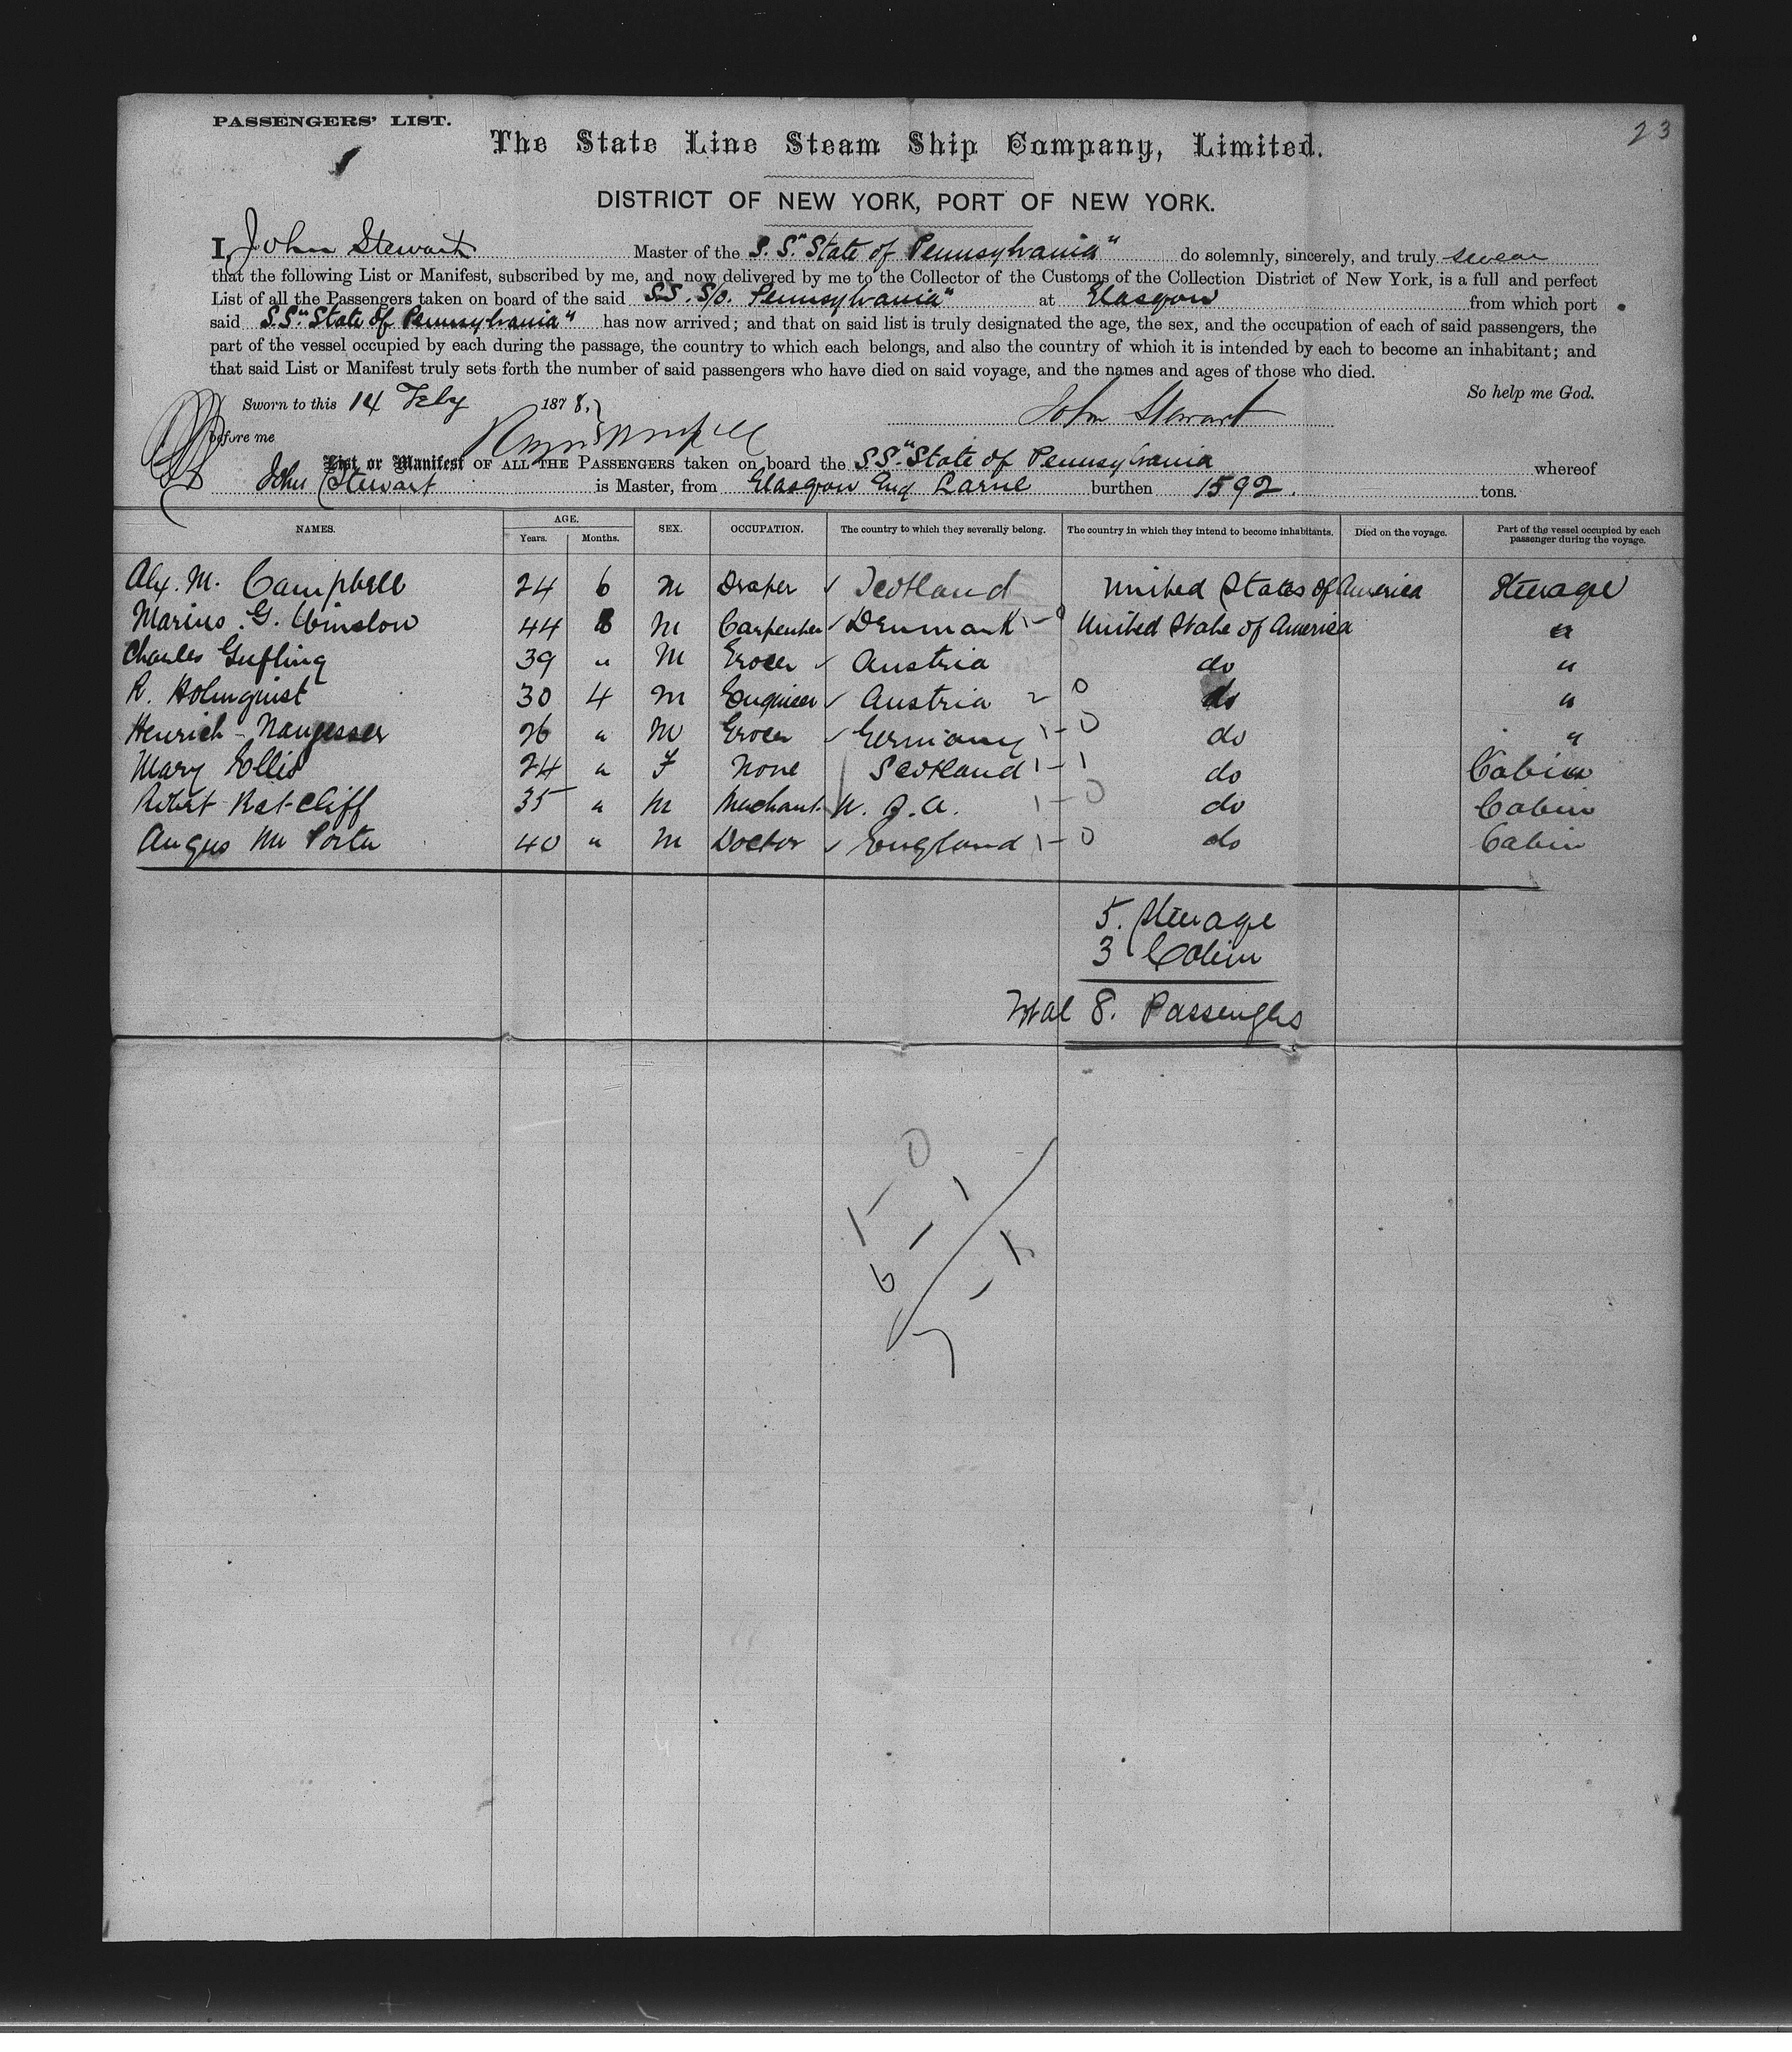 PASSENGERS' LIST.
23
The State Line Steam Ship Company, Limited.
DISTRICT OF NEW YORK, PORT OF NEW YORK.
I, John Stewart Master of the S.S. "State of Pennsylvania" do solemnly, sincerely, and truly swear
that the following List or Manifest, subscribed by me, and now delivered by me to the Collector of the Customs of the Collection District of New York, is a full and perfect
List of all the Passengers taken on board of the said S.S. S/o. Pennsylvania" at Glasgow from which port
said S.S. "State of Pennsylvania" has now arrived; and that on said list is truly designated the age, the sex, and the occupation of each of said passengers, the
part of the vessel occupied by each during the passage, the country to which each belongs, and also the country of which it is intended by each to become an inhabitant; and
that said List or Manifest truly sets forth the number of said passengers who have died on said voyage, and the names and ages of those who died.
So help me God.
Sworn to this 14 Feby 1878,
John Stewart
before me
List or Manifest OF ALL THE PASSENGERS taken on board the S.S. "State of Pennsylvania whereof
John Stewart is Master, from Glasgow and Larne burthen 1592. tons.
NAMES. AGE. Years. Months. SEX. OCCUPATION. The country to which they severally belong. The country in which they intend to become inhabitants. Died on the voyage. Part of the vessel occupied by each passenger during the voyage.
Alex. M. Campbell 24 6 M Draper Scotland United States of America Steerage
Marius. G. Winslow 44 8 M Carpenter Denmark 1-0 United State of America "
Charles 39 " M Grocer Austria do "
R. Holmquist 30 4 M Engineer Austria 2 0 do "
Henrich 26 " M Grocer Germany 1-0 do "
Mary Ellis 24 " F None Scotland 1-1 do Cabin
Robert Ratcliff 35 " M Merchant 1-0 do Cabin
Angus Mc Porter 40 " M Doctor England 1-0 do Cabin
5. Steerage
3 Cabin
Total 8. Passengers
1-0
6-1
7-1